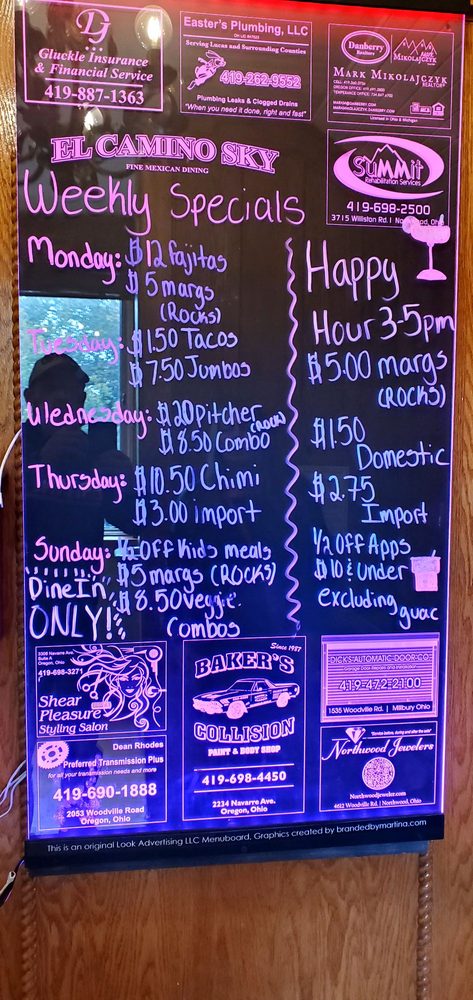 Gluckle Insurance
& Financial Service
419-887-1363
Easter's Plumbing, LLC
Serving Lucas and Surrounding Counties
419-262-9552
Plumbing Leaks & Clogged Drains
"When you need it done, right and fast"
Danberry
Realtors
MARK MIKOLAJCZYK
REALTOR®
Licensed in Ohio & Michigan
SUMMIT
Rehabilitation Services
419-698-2500
3715 Williston Rd. I
EL CAMINO SKY
FINE MEXICAN DINING
Weekly Specials
Monday: $12 fajitas
$5 margs
(Rocks)
Tuesday: $1.50 Tacos
$7.50 Jumbos
Wednesday: $20 Pitcher (ROCK)
$8.50 Combo
Thursday: $10.50 Chimi
$3.00 import
Sunday: 1/2 Off Kids meals
$5 margs (ROCKS)
$8.50 Veggie
Combos
DineIn
ONLY!
Happy
Hour 3-5pm
$5.00 margs
(ROCKS)
$1.50
Domestic
$2.75
Import
1/2 Off Apps
$10 & under
excluding
guac
3308 Navarre Ave.
Suite A
Oregon, Ohio
419-698-3271
Shear
Pleasure
Styling Salon
Dean Rhodes
Preferred Transmission Plus
for all your transmission needs and more
419-690-1888
2053 Woodville Road
Oregon, Ohio
Since 1987
BAKER'S
COLLISION
PAINT & BODY SHOP
419-698-4450
2234 Navarro Ave.
Oregon, Ohio
DICK'S AUTOMATIC DOOR CO.
419-472-2100
1535 Woodville Rd. | Millbury Ohio
"Service before, during and after the sale"
Northwood Jewelers
Northwoodjeweler.com
4612 Woodville Rd. | Northwood, Ohio
This is an original Look Advertising LLC Menuboard. Graphics created by brandedbymartina.com